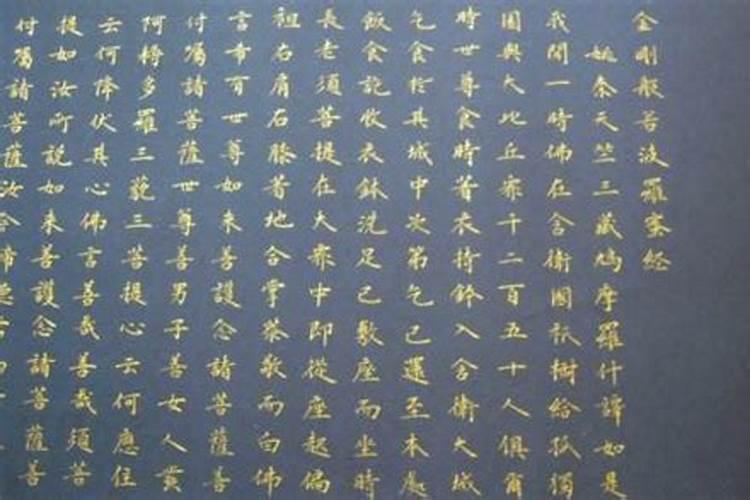 金剛般若波羅蜜經
姚秦天竺三藏鳩摩羅什譯如是
我聞一時佛在舍衛國祇樹給孤獨
園與大比丘眾千二百五十人俱爾
時世尊食時著衣持鉢入舍衛大城
乞食於其城中次第乞已還至本處
飯食訖收衣鉢洗足已敷座而坐時
長老須菩提在大眾中即從座起偏
袒右肩右膝著地合掌恭敬而白佛
言希有世尊如來善護念諸菩薩善
付囑諸菩薩世尊善男子善女人發
阿耨多羅三藐三菩提心云何應住
云何降伏其心佛言善哉善哉須菩
提如汝所說如來善護念諸菩薩善
付囑諸菩薩汝